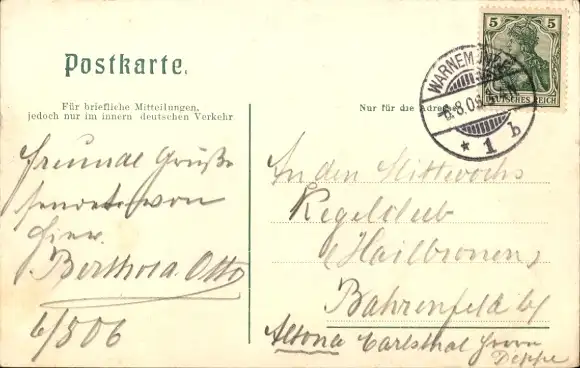 Postkarte.
Für briefliche Mitteilungen,
jedoch nur im innern deutschen Verkehr
Nur für die
5 5
DEUTSCHES REICH
WARNEMÜNDE
6.8.06
* 1 b
Freundl Grüße
sendet von
hier
Berthold Otto
6/8 06
An den Mittwochs
Kegelclub
(Hailbronen)
Bahrenfeld b/
Altona Carlsthal Herrn
Deppe